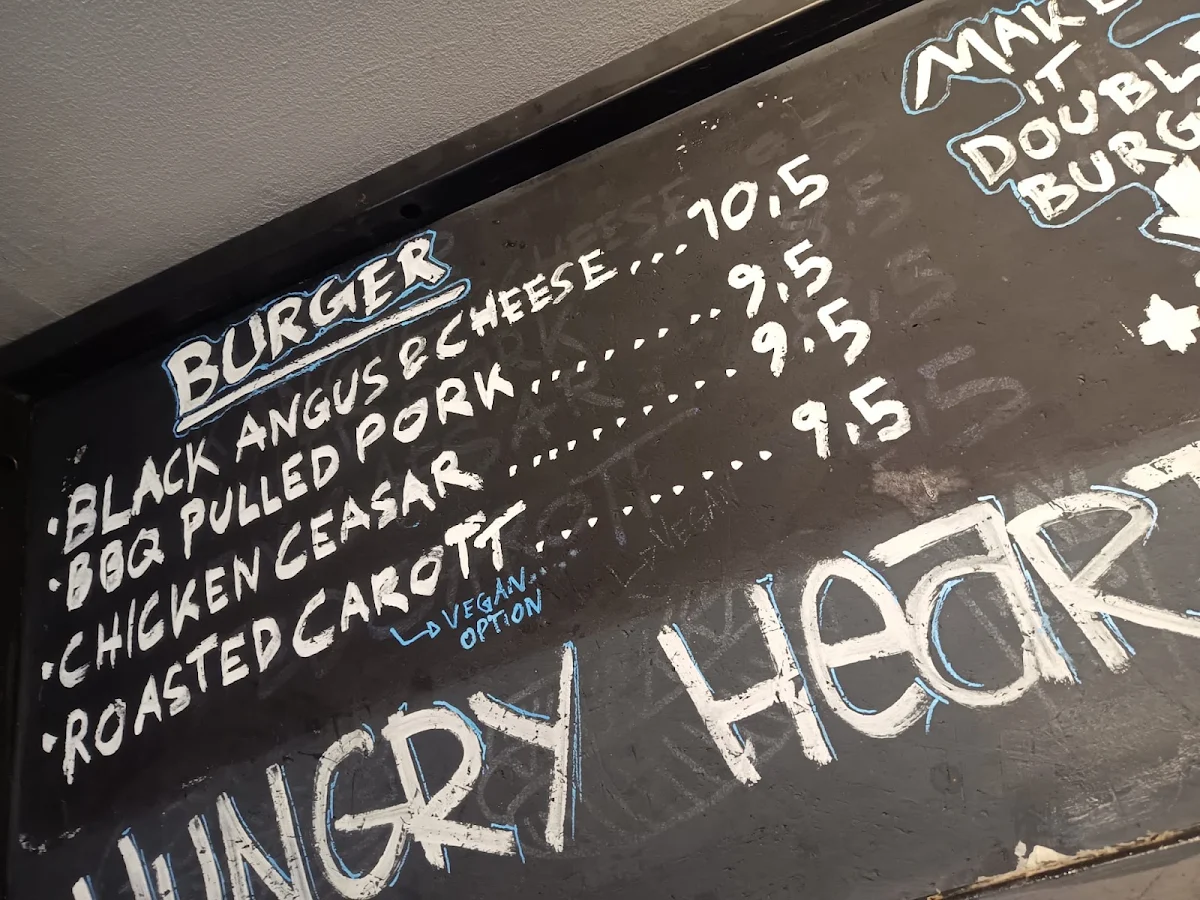 BURGER
• BLACK ANGUS & CHEESE... 10,5
• BBQ PULLED PORK......... 9,5
• CHICKEN CEASAR .......... 9,5
• ROASTED CAROTT.......... 9,5
VEGAN...
OPTION
HUNGRY HEART
MAKE
IT
DOUBL
BURG